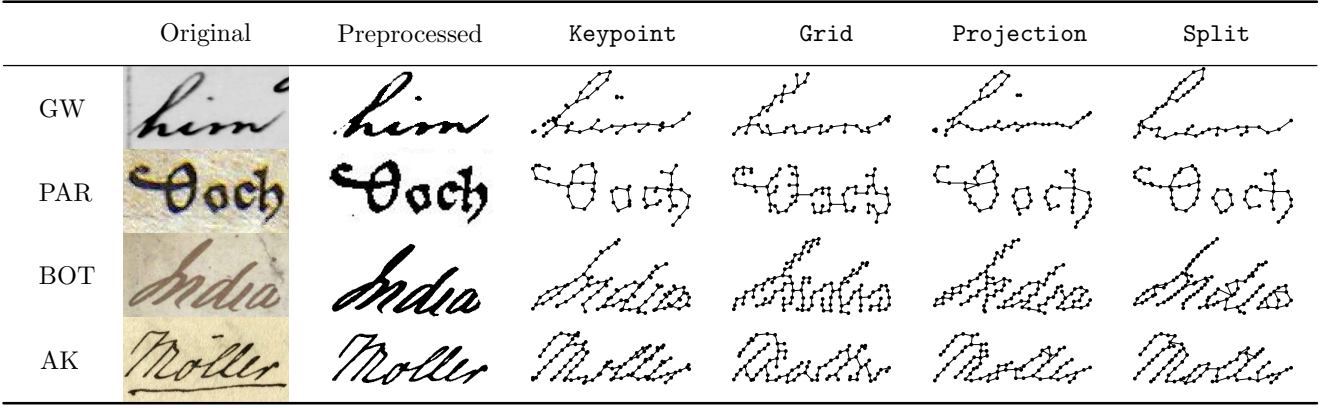 Original Preprocessed Keypoint Grid Projection Split
GW him him
PAR Doch Doch
BOT India India
AK Möller Moller